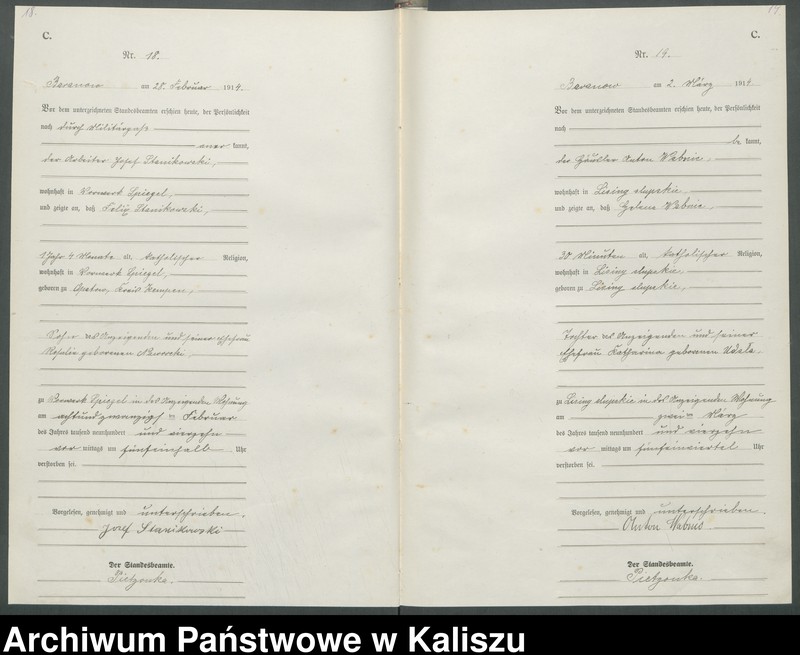 18.
C.
Nr. 18.
Baranow am 28. Februar 1914.
Vor dem unterzeichneten Standesbeamten erschien heute, der Persönlichkeit
nach durch Militärpaß
aner kannt,
der Arbeiter Josef Stanikowski,
wohnhaft in Vorwerk Spiegel,
und zeigte an, daß Stanikowski,
1 Jahr 4 Monate alt, katholischer Religion,
wohnhaft in Vorwerk Spiegel,
geboren zu Opatow, Kreis Kempen,
Sohn des Anzeigenden und seiner Ehefrau
Rosalie geborenen
zu Vorwerk Spiegel in des Anzeigenden Wohnung
am achtundzwanzigsten Februar
des Jahres tausend neunhundert und vierzehn
vor mittags um fünfeinhalb Uhr
verstorben sei.
Vorgelesen, genehmigt und unterschrieben.
Josef Stanikowski
Der Standesbeamte.
Pietzonka.
19.
C.
Nr. 19.
Baranow am 2. März 1914
Vor dem unterzeichneten Standesbeamten erschien heute, der Persönlichkeit
nach
be kannt,
der Häusler Anton Wabnic,
wohnhaft in slupskie,
und zeigte an, daß Helene Wabnic,
30 Minuten alt, katholischer Religion,
wohnhaft in slupskie,
geboren zu slupskie,
Tochter des Anzeigenden und seiner
Ehefrau Katharina geborenen Udała.
zu slupskie in des Anzeigenden Wohnung
am zweiten März
des Jahres tausend neunhundert und vierzehn
vor mittags um fünfeinviertel Uhr
verstorben sei.
Vorgelesen, genehmigt und unterschrieben.
Anton Wabnic
Der Standesbeamte.
Pietzonka.
Archiwum Państwowe w Kaliszu